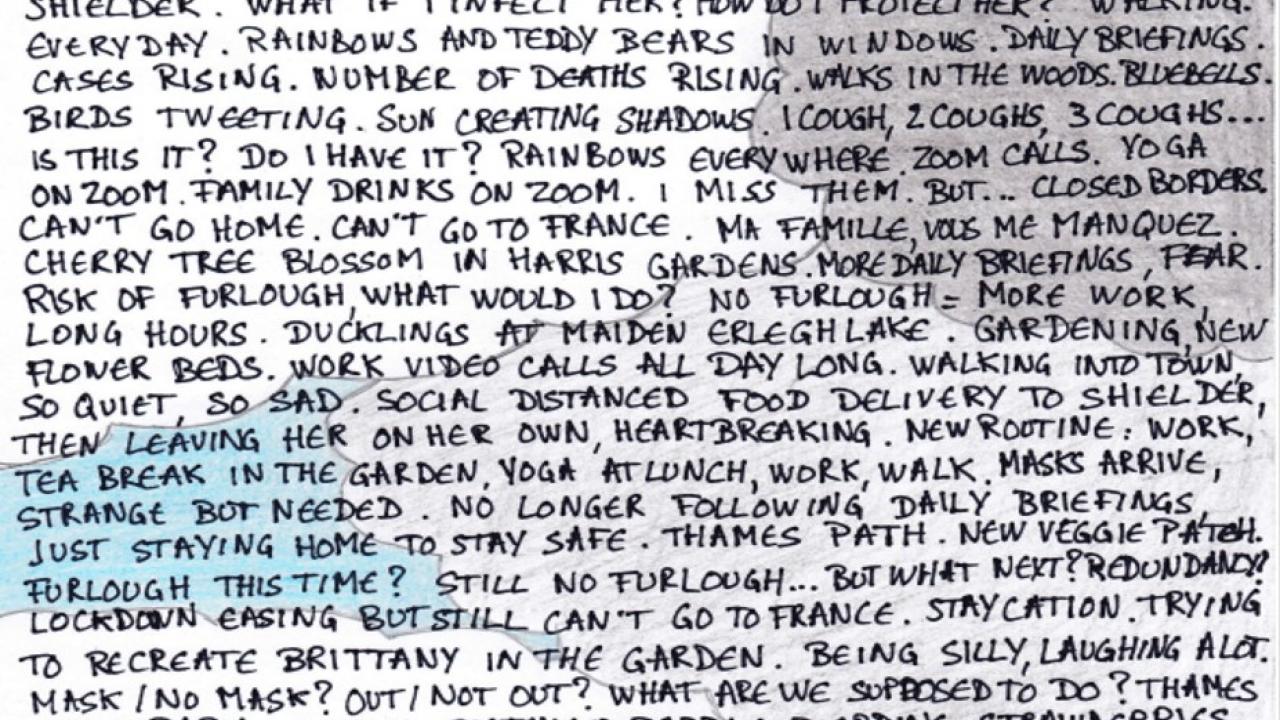 SHIELDER. WHAT IF I INFECT HER? HOW DO I PROTECT HER? WALKING.
EVERYDAY. RAINBOWS AND TEDDY BEARS IN WINDOWS. DAILY BRIEFINGS.
CASES RISING. NUMBER OF DEATHS RISING. WALKS IN THE WOODS. BLUEBELLS.
BIRDS TWEETING. SUN CREATING SHADOWS. 1 COUGH, 2 COUGHS, 3 COUGHS...
IS THIS IT? DO I HAVE IT? RAINBOWS EVERYWHERE. ZOOM CALLS. YOGA
ON ZOOM. FAMILY DRINKS ON ZOOM. I MISS THEM. BUT... CLOSED BORDERS.
CAN'T GO HOME. CAN'T GO TO FRANCE. MA FAMILLE, VOUS ME MANQUEZ.
CHERRY TREE BLOSSOM IN HARRIS GARDENS. MORE DAILY BRIEFINGS, FEAR.
RISK OF FURLOUGH, WHAT WOULD I DO? NO FURLOUGH = MORE WORK,
LONG HOURS. DUCKLINGS AT MAIDEN ERLEGH LAKE. GARDENING, NEW
FLOWER BEDS. WORK VIDEO CALLS ALL DAY LONG. WALKING INTO TOWN,
SO QUIET, SO SAD. SOCIAL DISTANCED FOOD DELIVERY TO SHIELDER,
THEN LEAVING HER ON HER OWN, HEARTBREAKING. NEW ROUTINE: WORK,
TEA BREAK IN THE GARDEN, YOGA AT LUNCH, WORK, WALK. MASKS ARRIVE,
STRANGE BUT NEEDED. NO LONGER FOLLOWING DAILY BRIEFINGS,
JUST STAYING HOME TO STAY SAFE. THAMES PATH. NEW VEGGIE PATCH.
FURLOUGH THIS TIME? STILL NO FURLOUGH... BUT WHAT NEXT? REDUNDANCY?
LOCKDOWN EASING BUT STILL CAN'T GO TO FRANCE. STAYCATION. TRYING
TO RECREATE BRITTANY IN THE GARDEN. BEING SILLY, LAUGHING A LOT.
MASK / NO MASK? OUT / NOT OUT? WHAT ARE WE SUPPOSED TO DO? THAMES